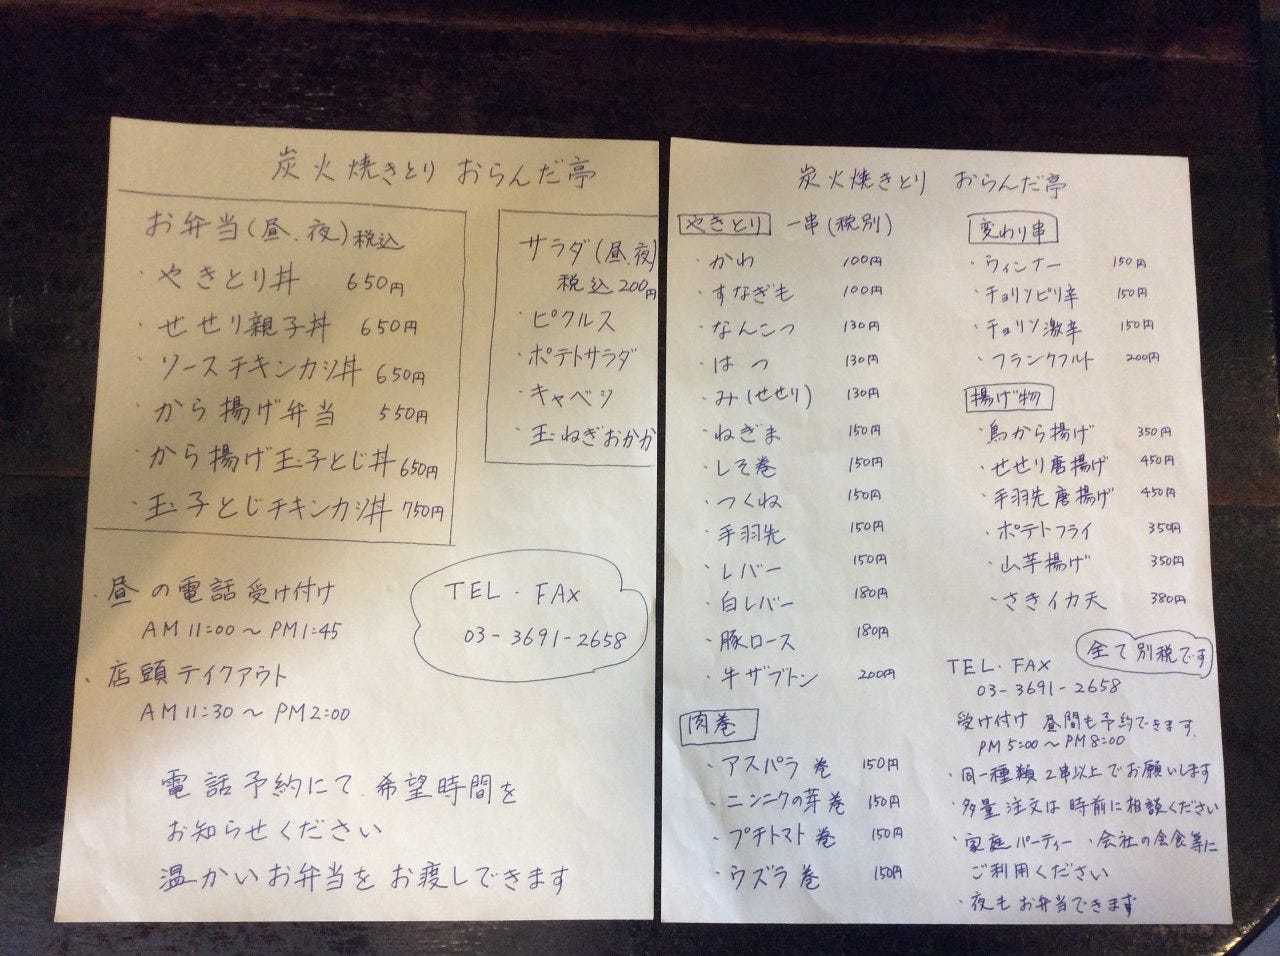 炭火焼きとり おらんだ亭
お弁当(昼、夜)税込
・やきとり丼 650円
・せせり親子丼 650円
・ソースチキンカツ丼 650円
・から揚げ弁当 550円
・から揚げ玉子とじ丼 650円
・玉子とじチキンカツ丼 750円
サラダ(昼、夜)
税込200円
・ピクルス
・ポテトサラダ
・キャベツ
・玉ねぎおかか
・昼の電話受け付け
AM11:00〜PM1:45
・店頭テイクアウト
AM11:30〜PM2:00
TEL・FAX
03-3691-2658
電話予約にて、希望時間を
お知らせください
温かいお弁当をお渡しできます
炭火焼きとり おらんだ亭
やきとり 一串(税別)
・かわ 100円
・すなぎも 100円
・なんこつ 130円
・はつ 130円
・み(せせり) 130円
・ねぎま 150円
・しそ巻 150円
・つくね 150円
・手羽先 150円
・レバー 150円
・白レバー 180円
・豚ロース 180円
・牛ザブトン 200円
肉巻
・アスパラ巻 150円
・ニンニクの芽巻 150円
・プチトマト巻 150円
・ウズラ巻 150円
変わり串
・ウィンナー 150円
・チョリソピリ辛 150円
・チョリソ激辛 150円
・フランクフルト 200円
揚げ物
・鳥から揚げ 350円
・せせり唐揚げ 450円
・手羽先唐揚げ 450円
・ポテトフライ 350円
・山芋揚げ 350円
・さきイカ天 380円
全て別税です
TEL・FAX
03-3691-2658
受け付け 昼間も予約できます。
PM5:00〜PM8:00
・同一種類2串以上でお願いします
・多量注文は時前に相談ください
・家庭パーティー、会社の会食等に
ご利用ください
・夜もお弁当できます